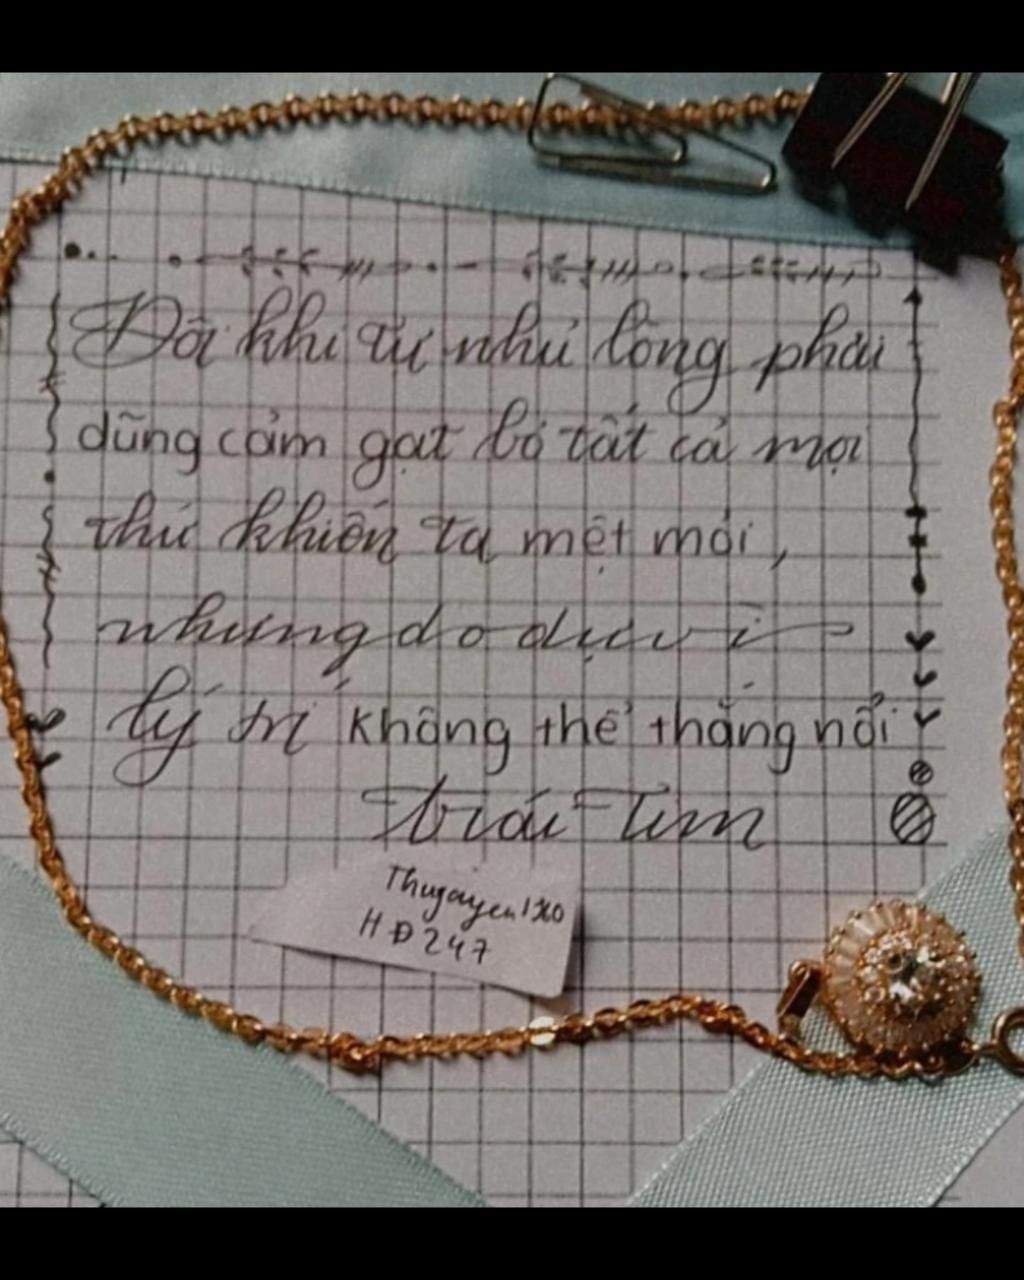 Đôi khi tự nhủ lòng phải
dũng cảm gạt bỏ tất cả mọi
thứ khiến ta mệt mỏi,
nhưng do dự vì
lý trí không thể thắng nổi
trái tim
HĐ247